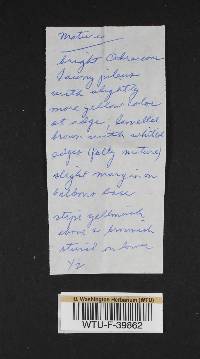 Mature
bright Ochraceous
Tawny pileus
with slightly
more yellow color
at edge, lamellae
brown with whitish
edges (fully mature)
slight margin on
bulbous base
stipe yellowish
above & brownish
on lower
1/2
U. Washington Herbarium (WTU)
WTU-F-39862